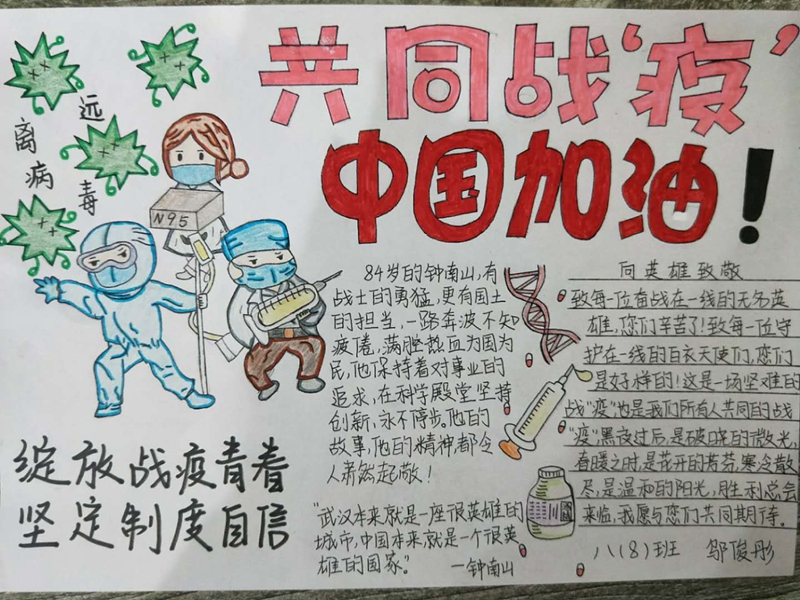 共同战‘疫’
中国加油！
远
离
病
毒
N95
84岁的钟南山，有
战士的勇猛，更有国士
的担当，一路奔波不知
疲倦，满腔热血为国为
民，他保持着对事业的
追求，在科学殿堂坚持
创新，永不停步。他的
故事，他的精神，都令
人肃然起敬！
“武汉本来就是一座很英雄的
城市，中国本来就是一个很英
雄的国家。”
—钟南山
向英雄致敬
致每一位奋战在一线的无名英
雄，您们辛苦了！致每一位守
护在一线的白衣天使们，您们
是好样的！这是一场坚难的
战“疫”也是我们所有人共同的战
“疫”，黑夜过后，是破晓的微光，
春暖之时，是花开的芬芳，寒冷散
尽，是温和的阳光，胜利总会
来临，我愿与您们共同期待。
八（8）班 邬俊彤
绽放战疫青春
坚定制度自信